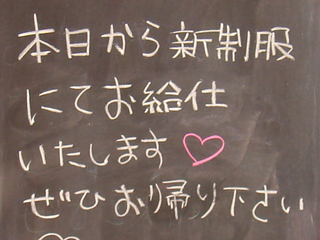 本日から新制服
にてお給仕
いたします♡
ぜひお帰り下さい